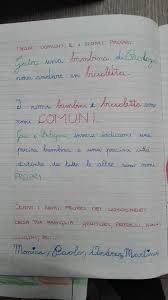 I NOMI COMUNI E I NOMI PROPRI
Gaia una bambina di
vuole andare in bicicletta.
I nomi bambina e bicicletta sono
nomi COMUNI.
Gaia e invece indicano una
precisa bambina e una precisa città
distinte da tutte le altre sono nomi
PROPRI.
SCRIVI I NOMI PROPRI DEI COMPONENTI
DELLA TUA FAMIGLIA
Monica, Paolo, Andrea, Martina